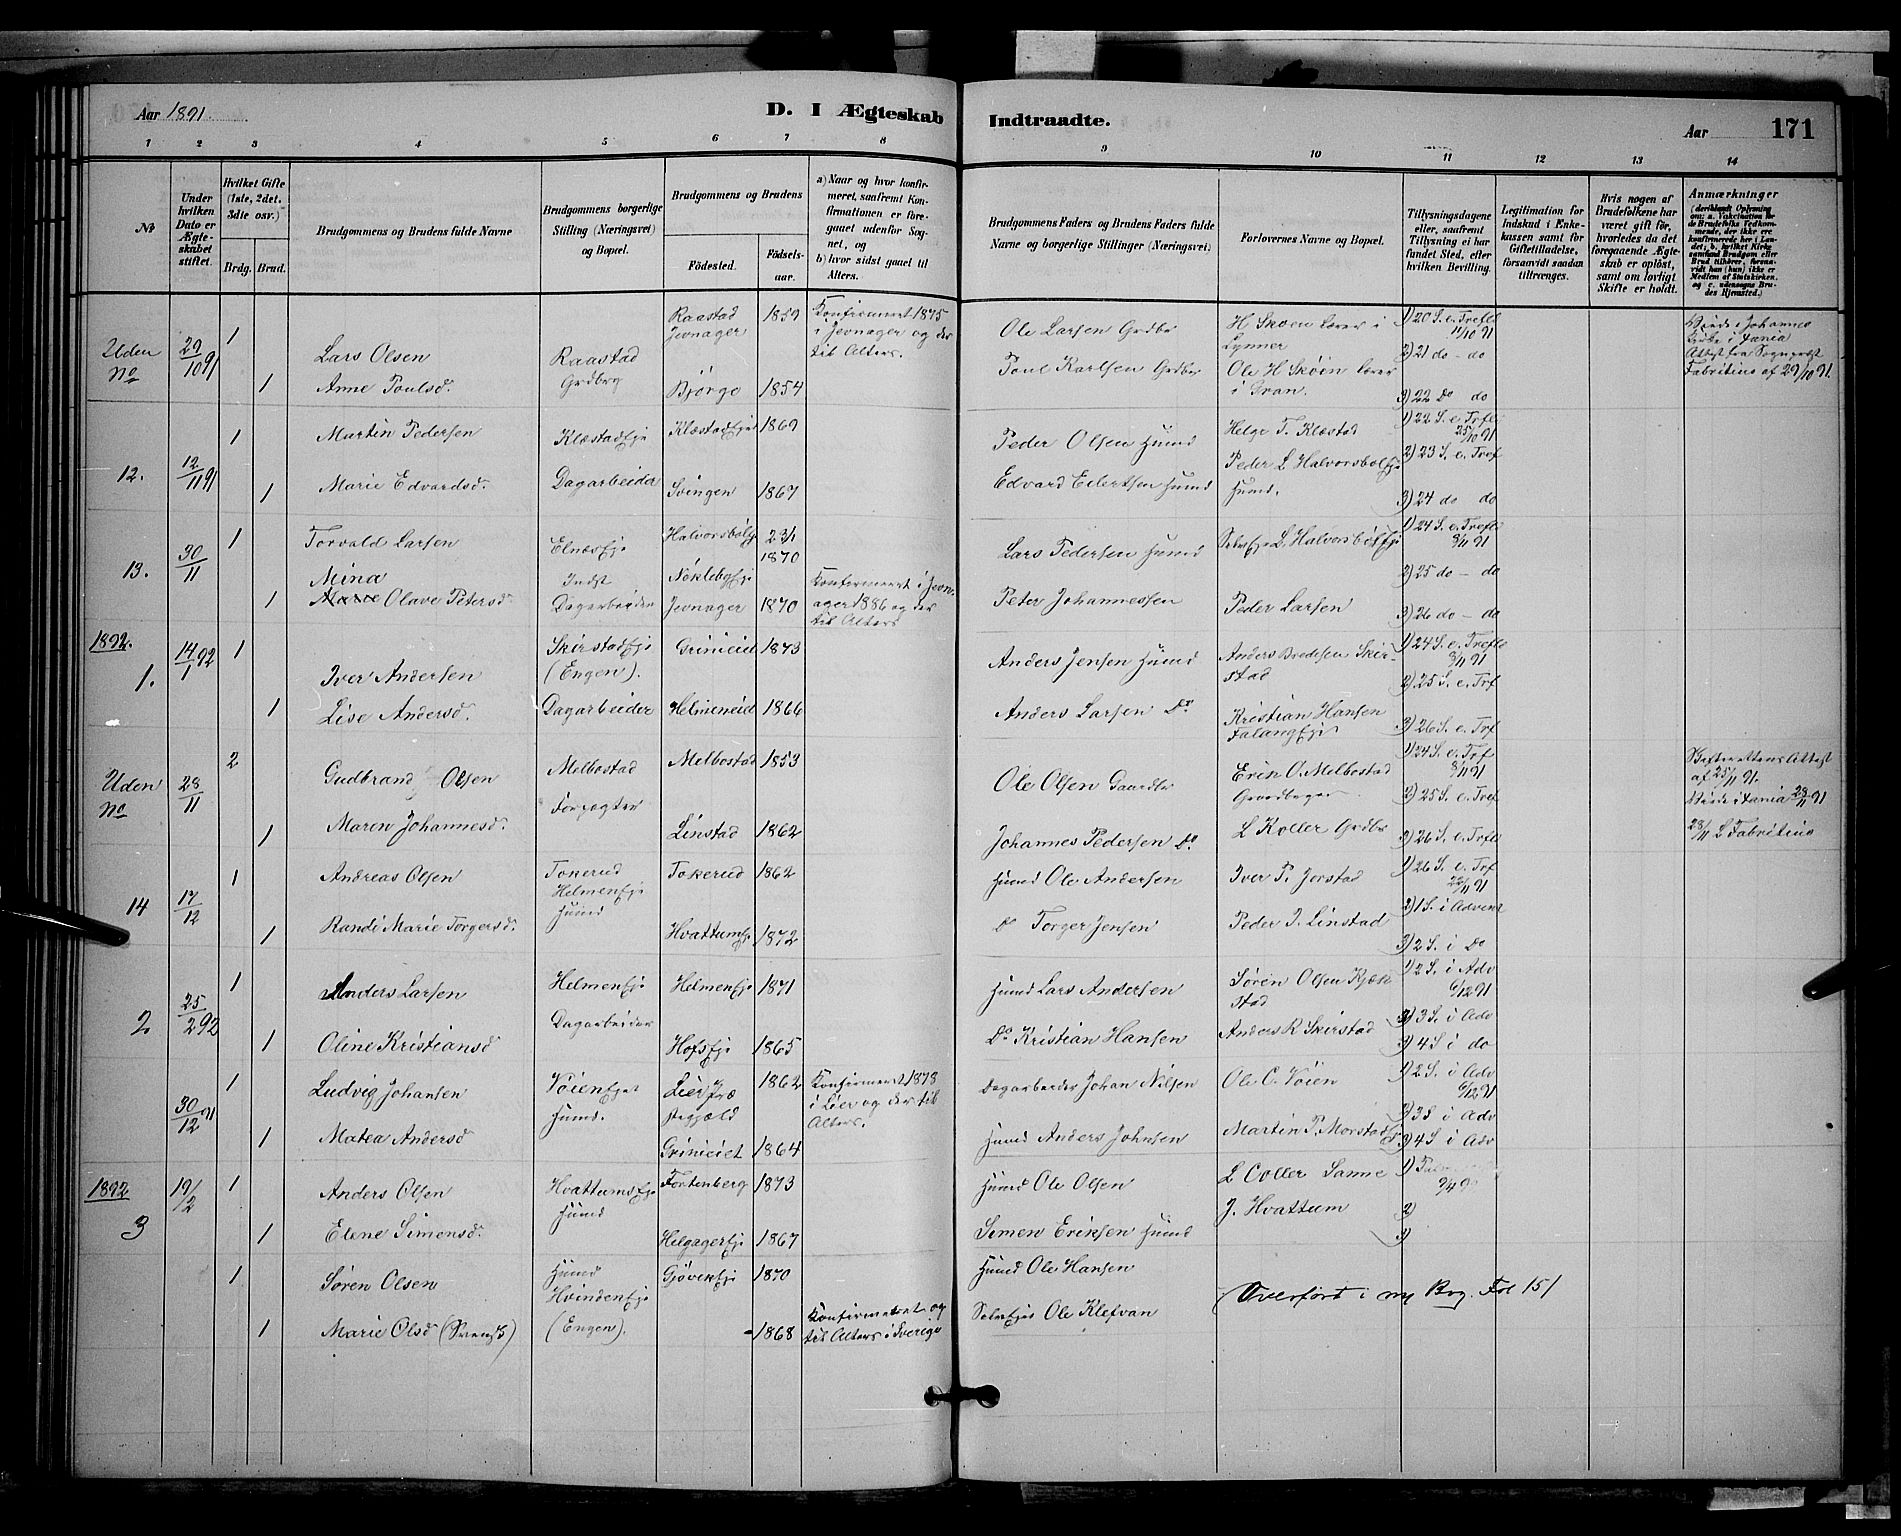 Aar 1891.
D. I Ægteskab
Indtraadte.
Aar
171
1 2 3 4 5 6 7 8
9 10 11 12 13 14
No
Under hvilken Dato er Ægteskabet stiftet.
Hvilket Gifte (1ste, 2det, 3die osv.)
Brdg. Brud.
Brudgommens og Brudens fulde Navne
Brudgommens borgerlige Stilling (Næringsvei) og Bopæl.
Brudgommens og Brudens
Födested.
Födsels-aar.
a) Naar og hvor konfirmeret, saafremt Konfirmationen er foregaaet udenfor Sognet, og
b) hvor sidst gaaet til Alters.
Brudgommens Faders og Brudens Faders fulde Navne og borgerlige Stillinger (Næringsvei)
Forlovernes Navne og Bopæl.
Tillysningsdagene eller, saafremt Tillysning ei har fundet Sted, efter hvilken Bevilling.
Legitimation for Indskud i Enkekassen samt for Giftetilladelse, forsaavidt saadan tiltrænges.
Hvis nogen af Brudefolkene har været gift för, hvorledes da det foregaaende Ægteskab er oplöst, samt om lovligt Skifte er holdt.
Anmærkninger
Uden No 29/10 91
1 Lars Olsen Raastad Grdbrg Raastad Jevnager 1859 Konfirmeret 1875 i Jevnager og der til Alters.
1 Anne Poulsd. Bjørge 1854
Ole Larsen Grdbr H Skøen Lærer i Lynner 1) 20 S. e. Trefl 11/10 91
2) 21 do - do
Poul Karlsen Grdbr Ole H Skøien Lærer i Gran. 3) 22 Do do
Fabritius af 29/10 91.
12. 12/11 91
1 Martin Pedersen Klæstadeje Dagarbeider Klæstadeje 1869
1 Marie Edvardsd. Svingen 1867
Peder Olsen Husmd Helge T. Klæstad 1) 22 S. e. Trefl 25/10 91
2) 23 S. e. Tref
Edvard Eilertsen Husmd Peder L Halvorsbøleje Husmd. 3) 24 do do
13. 30/11
1 Torvald Larsen Elnæseje Indst Dagarbeider Halvorsbøleje 23/1 1870
1 Mina Marie Olave Petersd. Nøklebyeje Jevnager 1870 Konfirmeret i Jevnager 1886 og der til Alters
Lars Pedersen Husmd Selveje L. Halvorsbøleje 1) 24 S. e. Trefl 8/11 91
2) 25 do - do
Peter Johannessen Peder Larsen 3) 26 do - do
1892.
1. 14/1 92
1 Iver Andersen Skirstadeje (Engen). Dagarbeider Grinieiet 1873
1 Lise Andersd. Helmeneiet 1866
Anders Jensen Husmd Anders Bredesen Skirstad 1) 24 S. e. Trefl 8/11 91
2) 25 S. e. Trf
Anders Larsen Do Kristian Hansen Falangeje 3) 26 S. e. Trf
Uden No 28/11
2 Gudbrand Olsen Melbostad Forpagter Melbostad 1853
1 Maren Johannesd. Linstad 1862
Ole Olsen Gaardbr Erin O. Melbostad Gaardbruger 1) 24 S. e. Trf 8/11 91
2) 25 S. e. Tref
Johannes Pedersen Do. L Koller Grdbr 3) 26 S. e. Trefl
Skifterettens Attest af 25/11 91.
28/11 L Fabritius
14 17/12
1 Andreas Olsen Tokerud Helmeneje Husmd Tokerud 1862
1 Randi Marie Torgersd. Hvattumeje 1872
Husmd Ole Andersen Iver P. Jorstad 1) 26 S. e. Trf 22/11 91
2) 1 S. i Advent
Do Torger Jensen Peder J. Linstad 3) 2 S. i Do
2 25/2 92
1 Anders Larsen Helmeneje Dagarbeider Helmeneje 1871
1 Oline Kristiansd Hofseje 1865
Husmd Lars Andersen Søren Olsen Kjækstad 1) 2 S. i Adv 6/12 91
2) 3 S. i Adv
Do Kristian Hansen Anders R Skirstad 3) 4 S i do
30/12 91
1 Ludvig Johansen Vøieneiet Husmd. Lier Præstegjæld 1862 Konfirmeret 1878 i Lier og der til Alters.
1 Matea Andersd Grinieiet 1864
Dagarbeider Johan Nilsen Ole C. Vøien 1) 2 S. i Adv 6/12 91
2) 3 S i Adv
Husmd Anders Johnsen Martin P. Morstad 3) 4 S i Adv
1892
3 19/2
1 Anders Olsen Hvattumseje Husmd Fortenberg 1873
1 Elene Simensd. Helgagereje 1867
Husmd Ole Olsen L Coller Sanne 1)
Simen Eriksen Husmd J. Hvattum 2)
3)
1 Søren Olsen Husmd Hvindeneje (Engen). Gjøvikeje 1870
1 Marie Olsd (Svensk) - 1868 Konfirmeret og til Alters i Sverige
Husmd Ole Hansen
Selveier Ole Klefvan
Overført i ny Bog. Fol 151